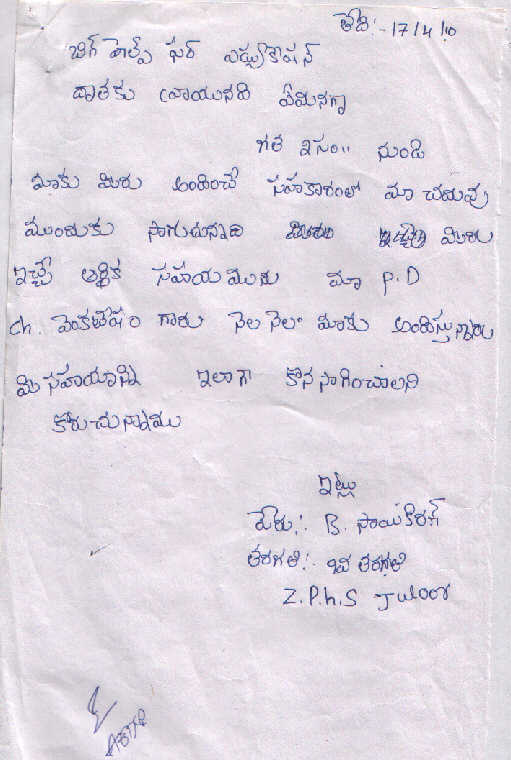 తేది:- 17/4/10
బిగ్ హెల్ప్ ఫర్ ఎడ్యుకేషన్
దాతకు వ్రాయునది ఏమనగా
గత 2సం॥ నుండి
మాకు మీరు అందించే సహకారంతో మా చదువు
ముందుకు సాగుచున్నది మీరు
ఇచ్చే ఆర్థిక సహయమును మా P.D
Ch. వెంకటేషం గారు నెల నెలా మాకు అందిస్తున్నారు
మీ సహయాన్ని ఇలాగా కొనసాగించాలని
కోరుచున్నాము
ఇట్లు
పేరు:- B. సాయికిరణ్
తరగతి:- తరగతి
Z.P.h.S Juloor